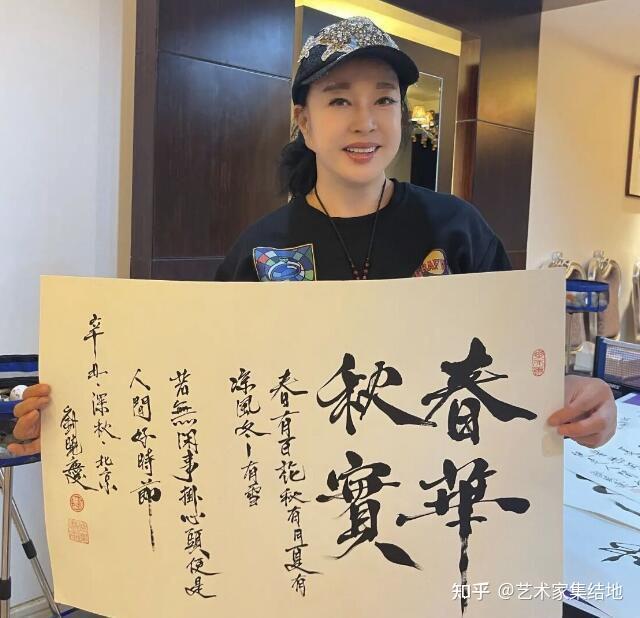 春華
秋實
春有百花秋有月夏有
涼風冬有雪
若無閑事掛心頭便是
人間好時節
辛丑·深秋 北京
劉曉慶
知乎 @艺术家集结地